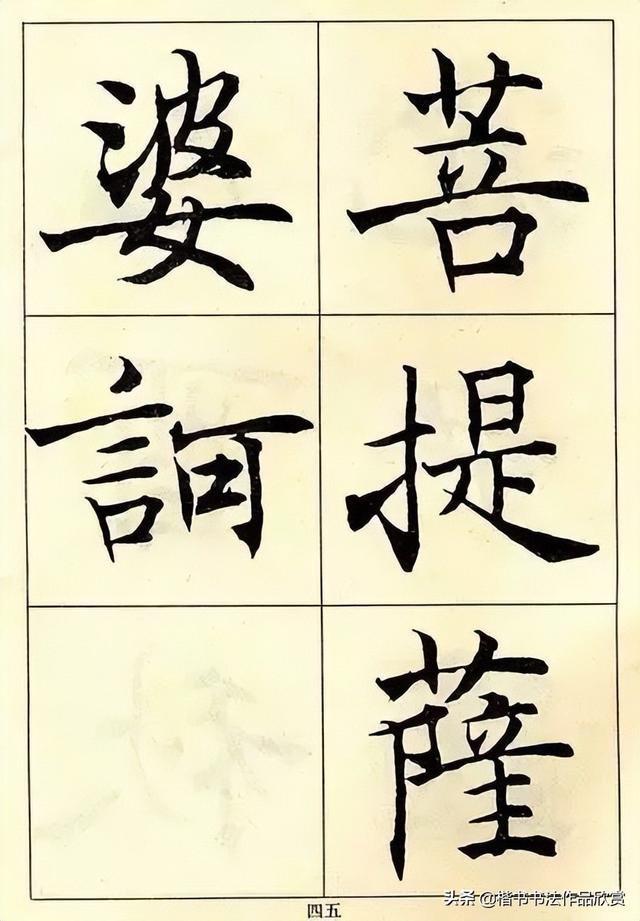 菩提薩
婆訶
四五
头条 @楷书书法作品欣赏